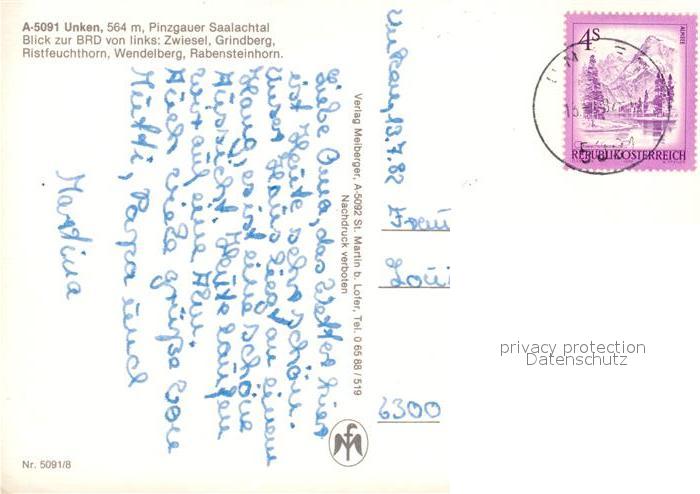 A-5091 Unken, 564 m, Pinzgauer Saalachtal
Blick zur BRD von links: Zwiesel, Grindberg,
Ristfeuchthorn, Wendelberg, Rabensteinhorn.
Liebe Oma, das Wetter hier
ist heute sehr schön.
Unser Haus liegt an einem
Hang, es ist eine schöne
Aussicht. Heute laufen
wir auf eine Alm.
Auch viele Grüße von
Mutti, Papa und
Martina
Verlag Meiberger, A-5092 St. Martin b. Lofer, Tel. 0 65 88 / 519
Nachdruck verboten
Unken, 13.7.82
Frau
Loui
6300
4 S
ALMSEE
REPUBLIK ÖSTERREICH
privacy protection
Datenschutz
Nr. 5091/8